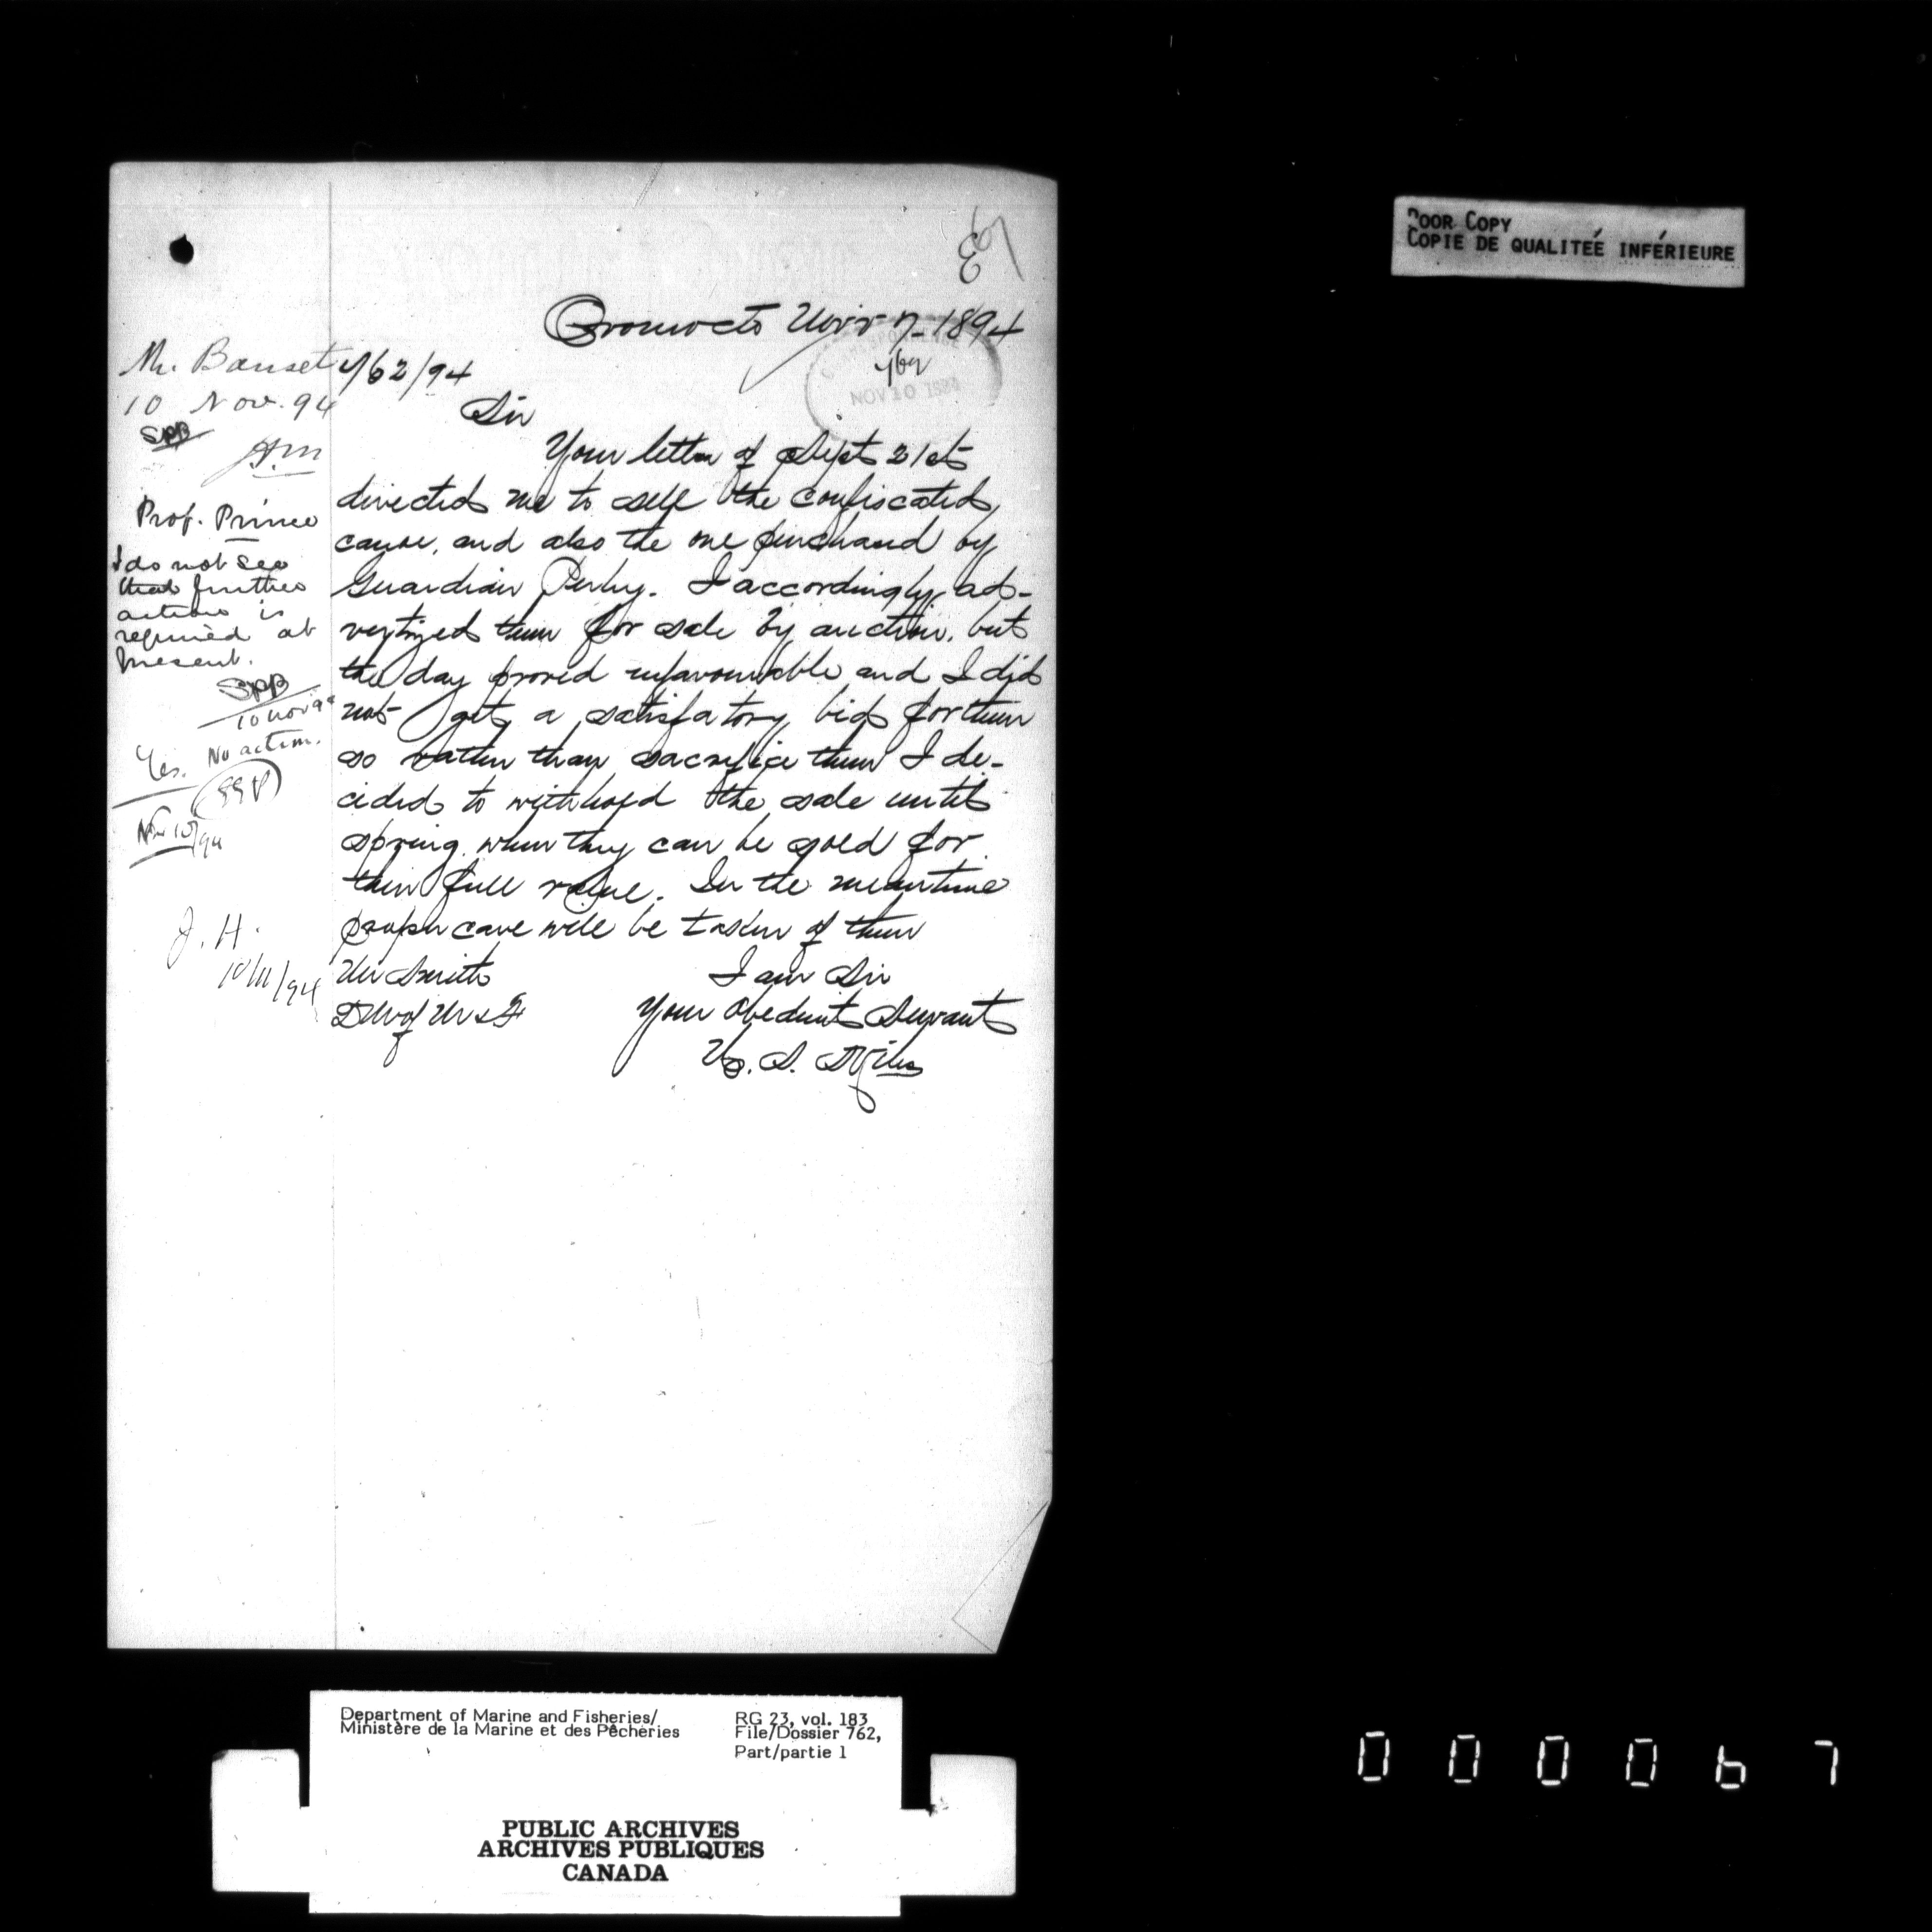 POOR COPY
COPIE DE QUALITEÉ INFÉRIEURE
67
Oromocto Novr 7-1894
762
NOV 10 189
Mr. Bauset 762/94
10 Nov. 94
SPB
Sir
Your letter of Sept 21st
directed me to sell the confiscated
canoe, and also the one purchased by
Guardian Perley. I accordingly, ad-
vertized them for sale by auction, but
the day proved unfavourable and I did
not get a satisfatory bid for them
so rather than sacrifice them I de-
cided to withhold the sale until
spring when they can be sold for
their full value. In the meantime
proper care will be taken of them
Mr Smith
I am Sir
DM of M & F
Your Obedient Servant
Prof. Prince
I do not see
that further
action is
required at
present.
SPB
10 Nov 94
Yes. No action.
EEP
Nov 10/94
J. H.
10/11/94
Department of Marine and Fisheries/
Ministère de la Marine et des Pêcheries
RG 23, vol. 183
File/Dossier 762,
Part/partie 1
PUBLIC ARCHIVES
ARCHIVES PUBLIQUES
CANADA
000067